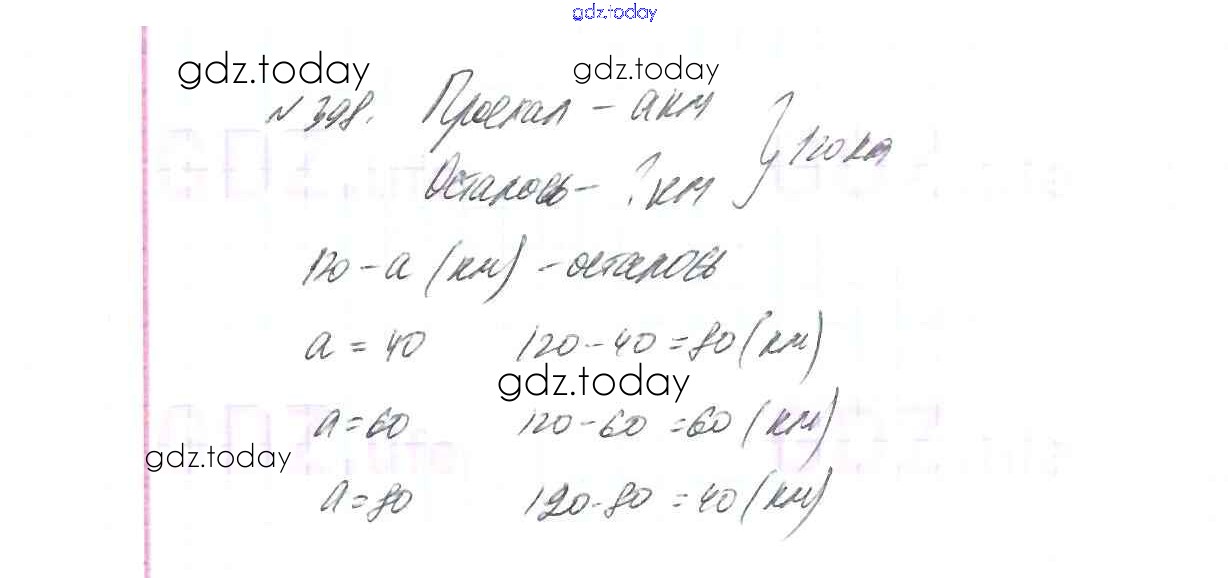 gdz.today
gdz.today gdz.today
№ 398. Проехал – а км } 120 км
Осталось – ? км
120 – а (км) – осталось
а = 40 120 – 40 = 80 (км)
gdz.today
а = 60 120 – 60 = 60 (км)
gdz.today
а = 80 120 – 80 = 40 (км)